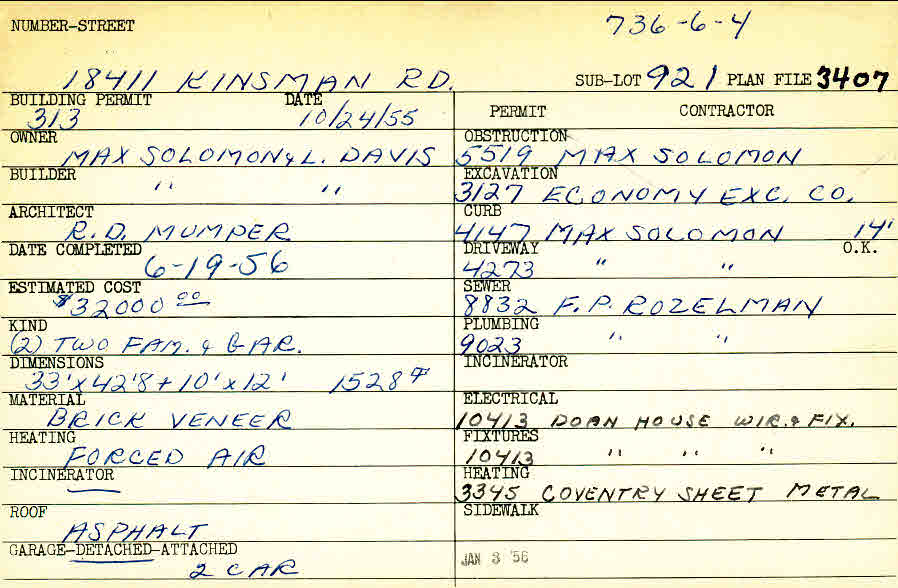 NUMBER-STREET
736-6-4
18411 KINSMAN RD.
SUB-LOT 921 PLAN FILE 3407
BUILDING PERMIT DATE
313 10/24/55
OWNER
MAX SOLOMON & L. DAVIS
BUILDER
" "
ARCHITECT
R.D. MUMPER
DATE COMPLETED
6-19-56
ESTIMATED COST
$32000 00
KIND
(2) TWO FAM. & GAR.
DIMENSIONS
33'x42'8+10'x12' 1528
MATERIAL
BRICK VENEER
HEATING
FORCED AIR
INCINERATOR
—
ROOF
ASPHALT
GARAGE-DETACHED-ATTACHED
2 CAR
PERMIT CONTRACTOR
OBSTRUCTION
5519 MAX SOLOMON
EXCAVATION
3127 ECONOMY EXC. CO.
CURB
4147 MAX SOLOMON 14'
DRIVEWAY O.K.
4273 " "
SEWER
8832 F.P. ROZELMAN
PLUMBING
9023 " "
INCINERATOR
ELECTRICAL
10413 DOAN HOUSE WIR. & FIX.
FIXTURES
10413 " " "
HEATING
3345 COVENTRY SHEET METAL
SIDEWALK
JAN 3 '56